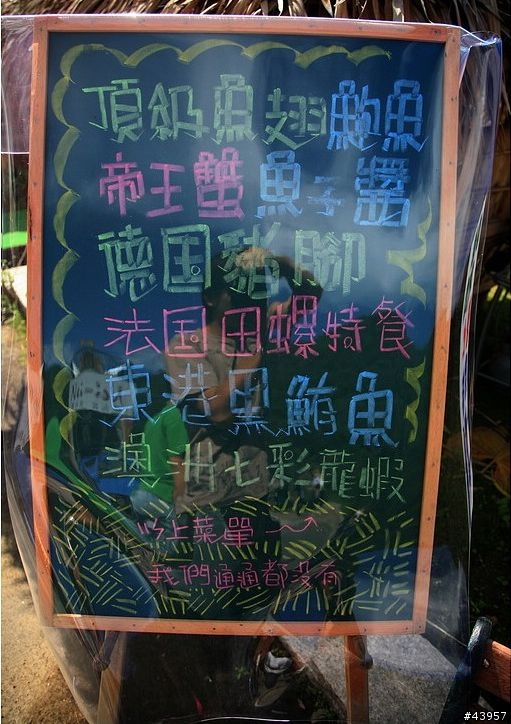 頂級魚翅鮑魚
帝王蟹魚子醬
德国豬腳
法国田螺特餐
東港黑鮪魚
澳洲七彩龍蝦
以上菜單
我們通通都没有
#43957